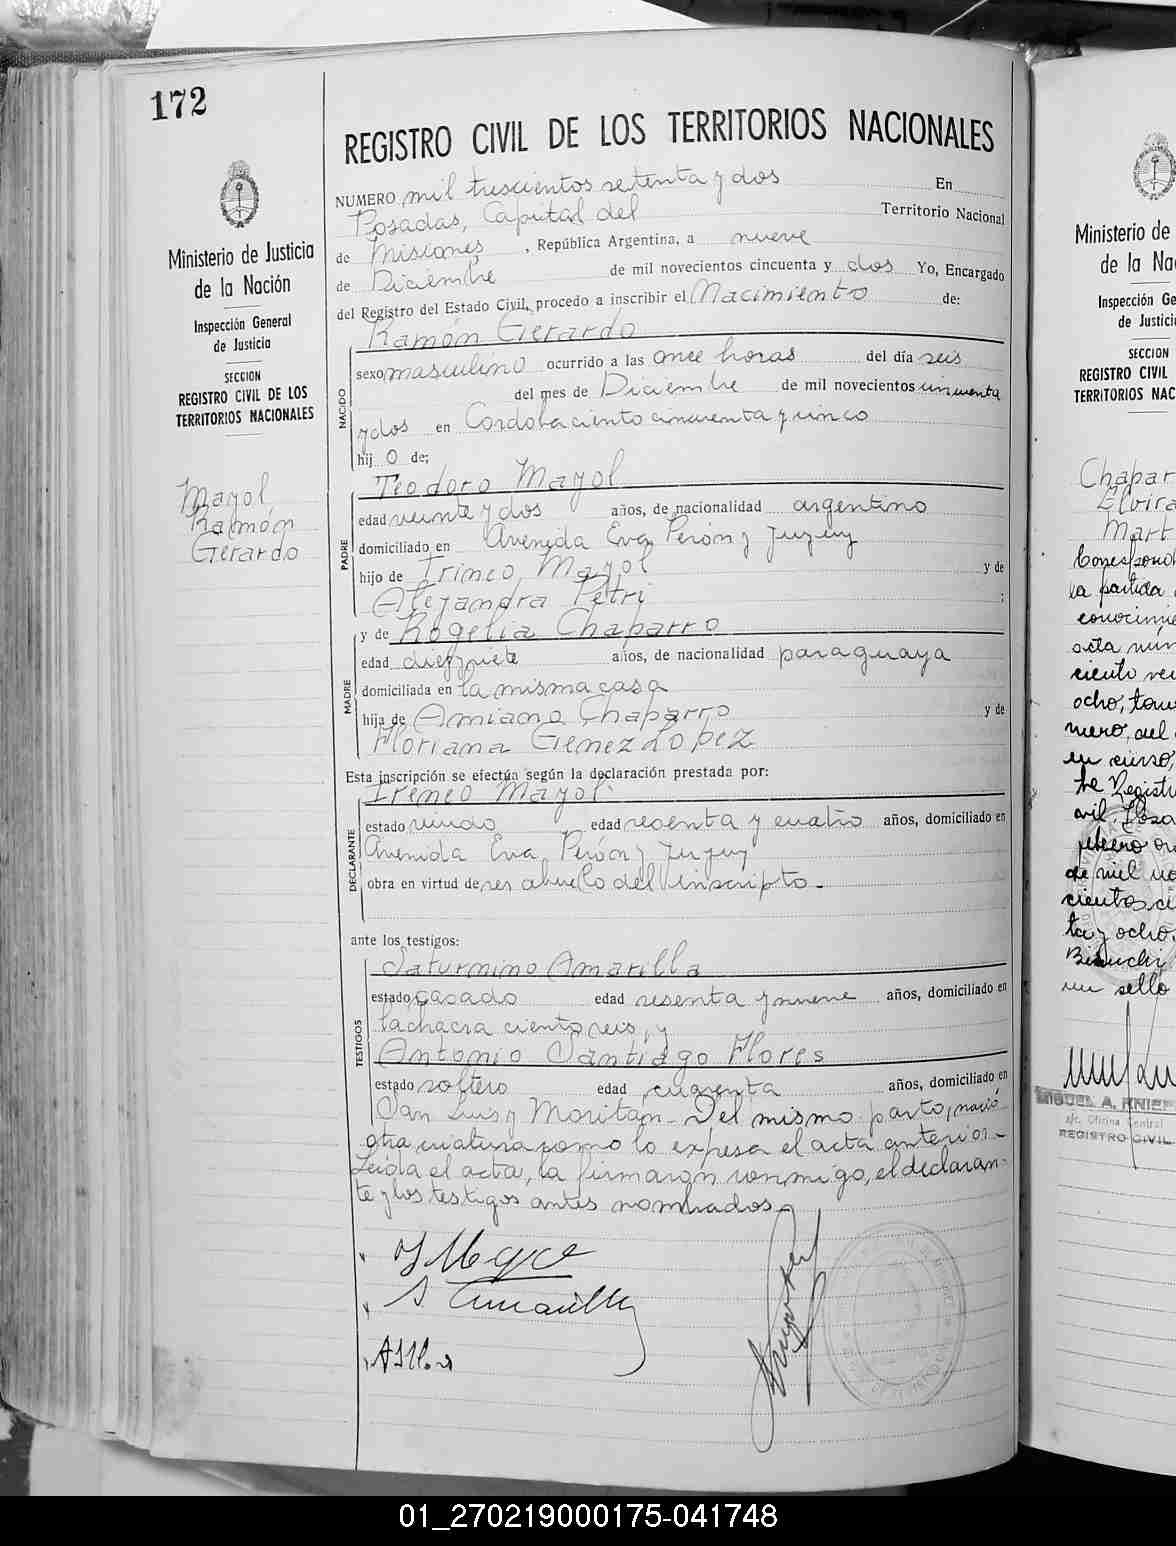 172
REGISTRO CIVIL DE LOS TERRITORIOS NACIONALES
Ministerio de Justicia
de la Nación
Inspección General
de Justicia
SECCION
REGISTRO CIVIL DE LOS
TERRITORIOS NACIONALES
Mayol
Ramón
Gerardo
NUMERO mil trescientos setenta y dos En
Posadas, Capital del Territorio Nacional
de Misiones, República Argentina, a nueve
de Diciembre de mil novecientos cincuenta y dos Yo, Encargado
del Registro del Estado Civil, procedo a inscribir el Nacimiento de:
Ramón Gerardo
NACIDO
sexo masculino ocurrido a las once horas del día seis
del mes de Diciembre de mil novecientos cincuenta
y dos en Córdoba ciento cincuenta y cinco
hij o de;
Teodoro Mayol
PADRE
edad veinte y dos años, de nacionalidad argentino
domiciliado en Avenida Eva Perón y Jujuy
hijo de Irineo Mayol y de
Alejandra Petri ;
y de Rogelia Chaparro
MADRE
edad diezysiete años, de nacionalidad paraguaya
domiciliada en la misma casa
hija de Amiano Chaparro y de
Floriana Genez López
Esta inscripción se efectúa según la declaración prestada por:
Ireneo Mayol
DECLARANTE
estado viudo edad sesenta y cuatro años, domiciliado en
Avenida Eva Perón y Jujuy
obra en virtud de ser abuelo del inscripto.
ante los testigos:
Saturnino Amarilla
TESTIGOS
estado casado edad sesenta y nueve años, domiciliado en
la chacra ciento seis, y
Antonio Santiago Flores
estado soltero edad cuarenta años, domiciliado en
San Luis y Moritán. Del mismo parto, nació
otra criatura como lo expresa el acta anterior.-
Leída el acta, la firmaron conmigo, el declaran-
te y los testigos antes nombrados.
S. Amarilla
Ministerio de
de la Na
Inspección Ge
de Justici
SECCION
REGISTRO CIVIL
TERRITORIOS NAC
Chapar
Elvira
Mart
Correspond
la partida
conocimie
acta núm
ciento vei
ocho, tom
mero, del
en curso,
te Registr
ivil. Posa
de mil no
cientos ci
ta y ocho.
Bianchi
un sello
MIGUEL A. KNIE
Oficina Central
REGISTRO CIVIL
01_270219000175-041748